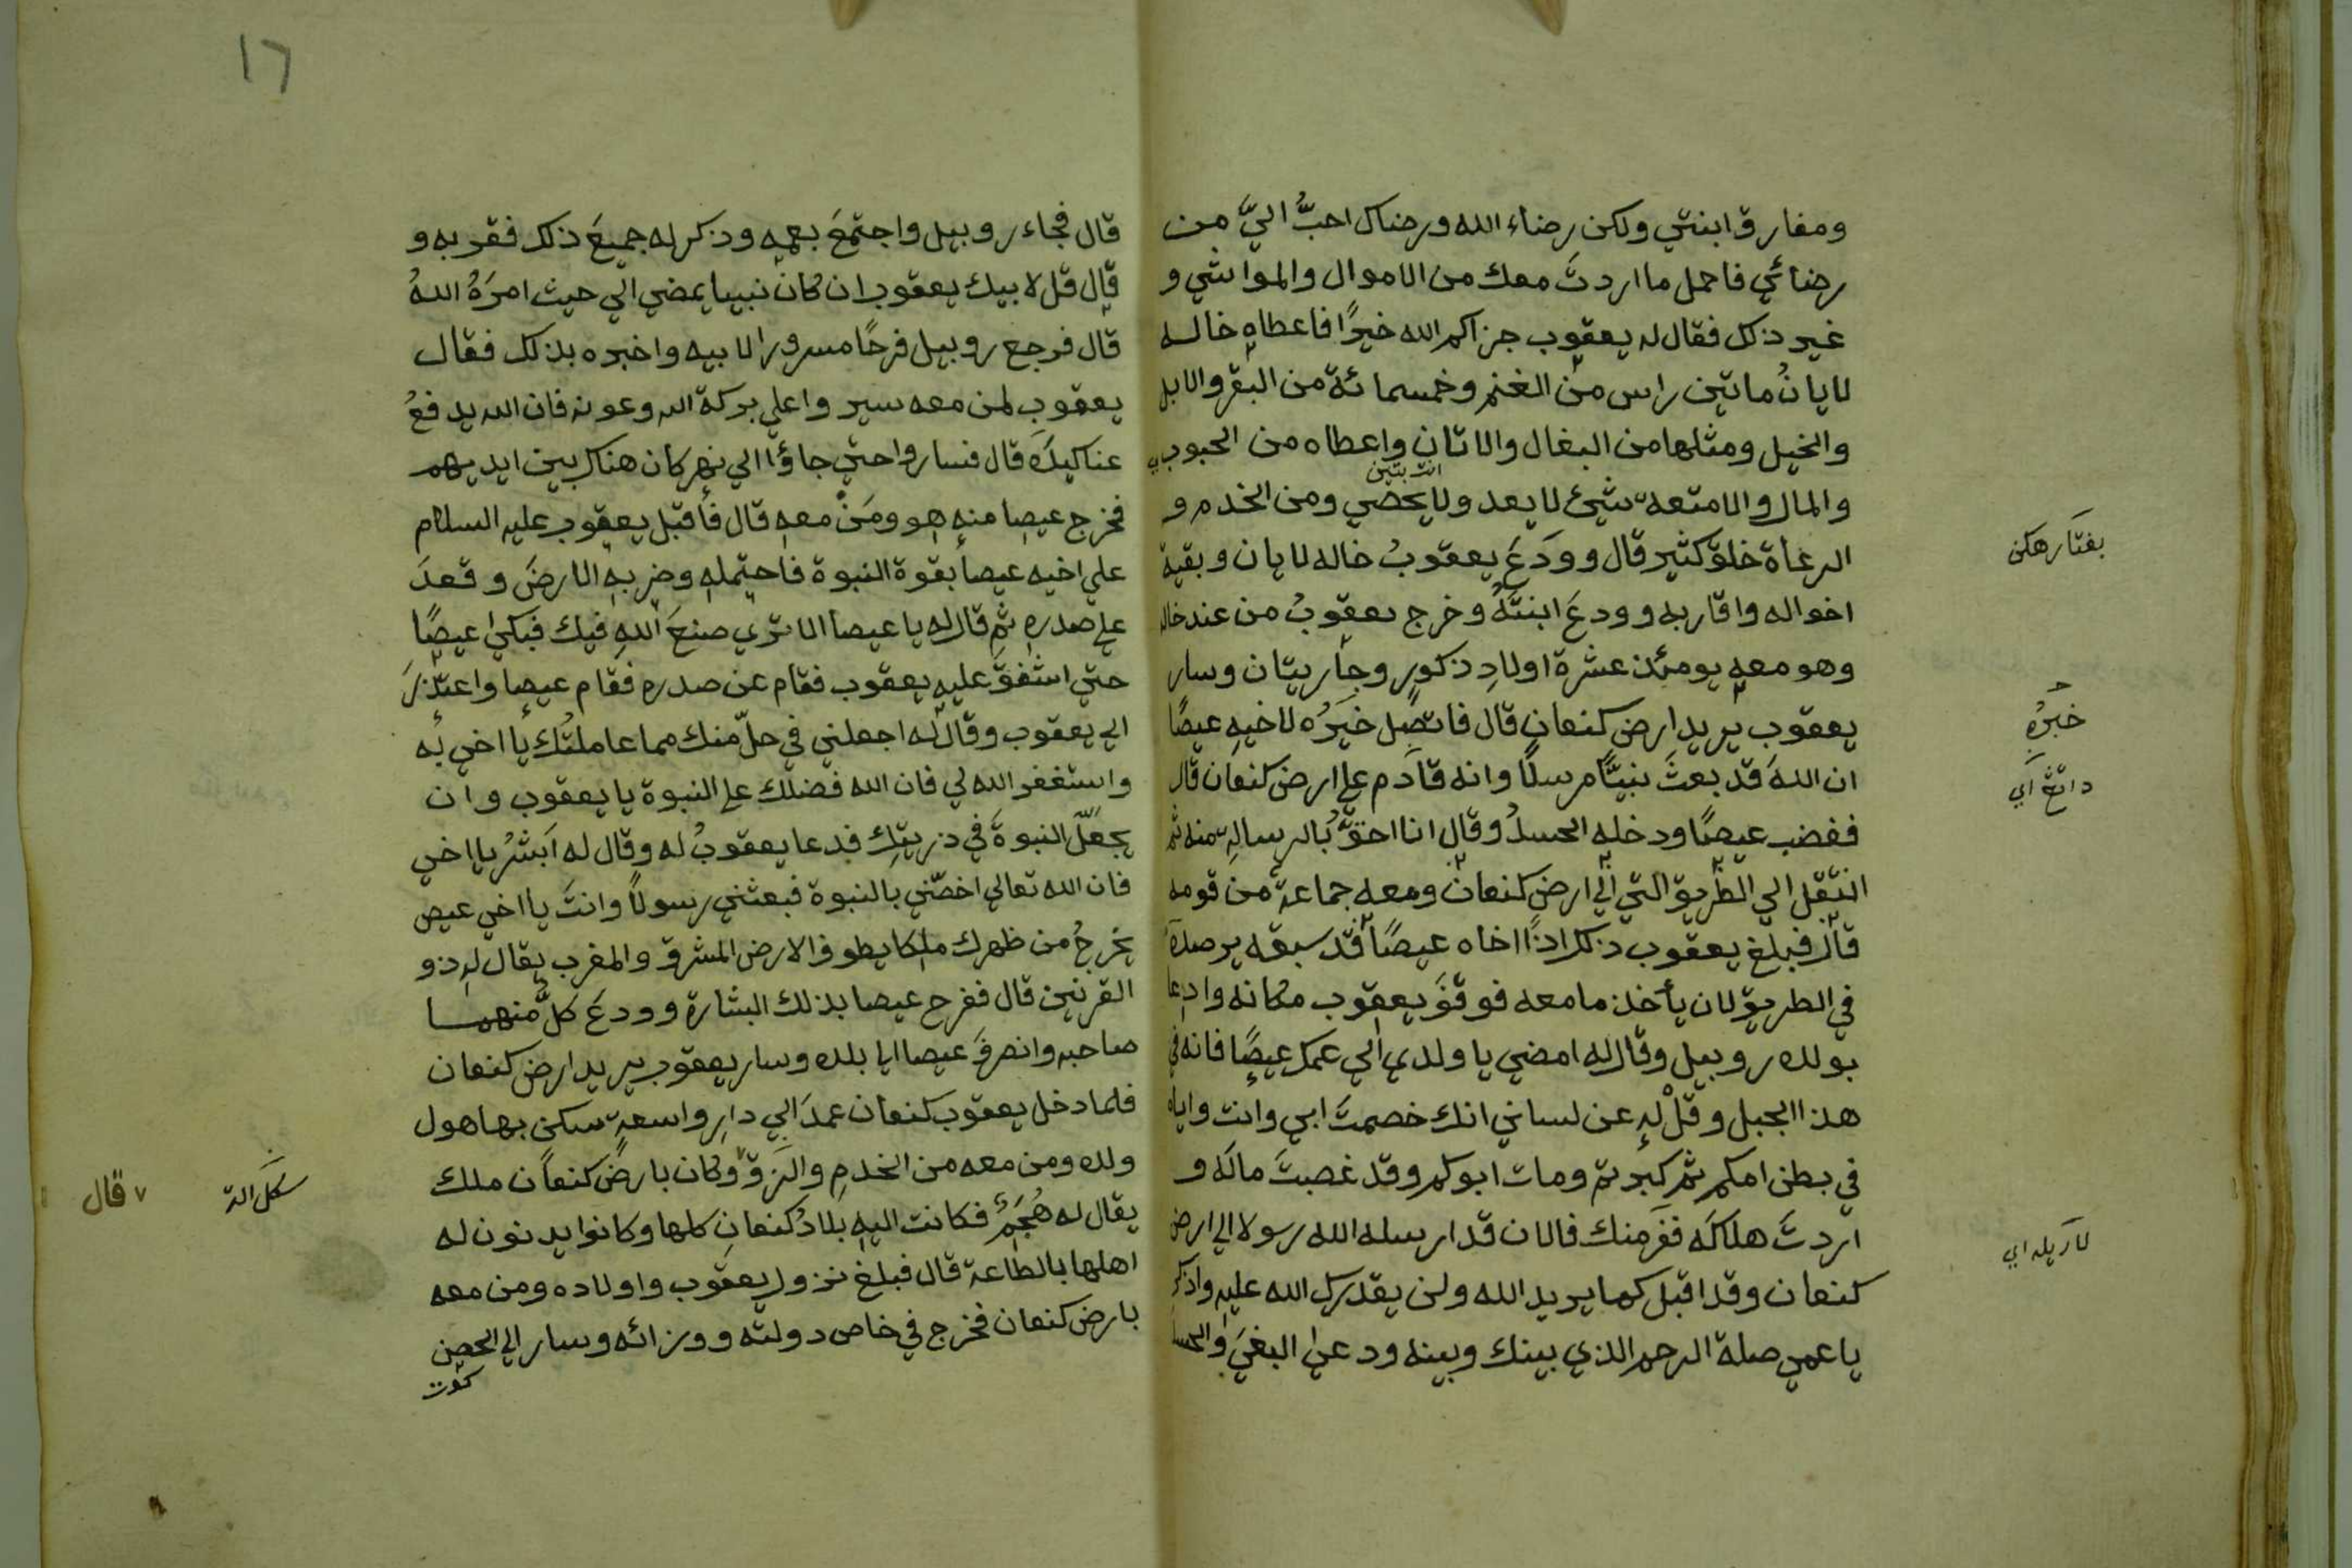 ومفارقة ابنتي ولكن رضاء الله ورضاك احبُّ اليَّ من
رضائي فاحمل ما اردتَ معك من الاموال والمواشي و
غير ذلك فقال له يعقوب جزاكم الله خيرًا فاعطاه خاله
لايانُ ماتين راس من الغنم وخمسمائة من البقر والابل
والخيل ومثلها من البغال والاتان واعطاه من الحبوب
والمال والامتعة شيئ لا يعد ولا يحصي ومن الخدم و
الرعاة خلق كثير قال وودَعَ يعقوبُ خاله لايان وبقية
اخواله واقاربه وودعَ ابنتَهُ وخرج يعقوبُ من عند خاله
وهو معه يومئذ عشرة اولادِ ذكورٍ وجاريتان وسار
يعقوب يريد ارض كنعان قال فاتصل خبَرُه لاخيه عيصًا
ان اللهَ قد بعثَ نبيًّا مرسلًا وانه قادم علي ارض كنعان قال
فغضب عيصًا ودخله الحسدُ وقال انا احقُّ بالرسالةِ منه ثم
انتقل الي الطريق التي الي ارض كنعان ومعه جماعة من قومه
قال فبلغ يعقوب ذلك اذًا اخاه عيصًا قد سبقه يرصده
في الطريق لان يأخذ ما معه فوقفَ يعقوب مكانه وادعا
بولده روبيل وقال له امضي يا ولدي الي عمك عيصًا فانه في
هذا الجبل وقلْ له عن لساني انك خصمتَ ابي وانت واياه
في بطن امكم ثم كبرتم ومات ابوكم وقد غصبتَ مالَه و
اردتَ هلاكَه ففرّ منك فالان قد ارسله الله رسولا الي ارض
كنعان وقد اقبل كما يريد الله ولن يقدرك الله عليه واذكر
يا عمي صلة الرحم الذي بينك وبينه ودع البغيَ والحسد
بغتارهكن
خبرُه
داتڠ اي
لاريله اي
١٦
قال فجاء روبيل واجتمعَ بعمه وذكر له جميعَ ذلك فقربه و
قال قل لابيك يعقوب ان كان نبيا يمضي الي حيث امرَهُ اللهُ
قال فرجع روبيل فرحًا مسرورا لابيه واخبره بذلك فقال
يعقوب لمن معه سيروا علي بركة الله وعونه فان الله يدفعُ
عنا كيدَه قال فساروا حتي جاؤا الي نهر كان هناك بين ايديهم
فخرج عيصا منه هو ومَنْ معه قال فأقبل يعقوب عليه السلام
علي اخيه عيصا بقوة النبوة فاحتمله وضرب به الارضَ وقعدَ
علي صدره ثم قال له يا عيصا الا تري صنعَ الله فيك فبكي عيصًا
حتي اشفقَ عليه يعقوب فقام عن صدره فقام عيصا واعتذرَ
الي يعقوب وقال له اجعلني في حلّ منك مما عاملتُك يا اخي به
واستغفر الله لي فان الله فضلك علي النبوة يا يعقوب وان
يجعلَ النبوةَ في ذريتك فدعا يعقوبُ له وقال له اَبشرُ يا اخي
فان الله تعالي اخصّني بالنبوة فبعثني رسولاً وانتَ يا اخي عيص
يخرجُ من ظهرك ملكا يطوف الارض المشرق والمغرب يقال له ذو
القرنين قال ففرح عيصا بذلك البشارة وودعَ كلٌّ منهما
صاحبه وانصرفَ عيصا الي بلده وسار يعقوب يريد ارض كنعان
فلما دخل يعقوب كنعان عمدَ الي دارٍ واسعةٍ سكن بها هول
ولده ومن معه من الخدمِ والرَزقِ وكان بارض كنعان ملك
يقال له هُجَيمٌ فكانت اليه بلادُ كنعان كلها وكانوا يدنون له
اهلها بالطاعة قال فبلغ نزول يعقوب واولاده ومن معه
بارض كنعان فخرج في خاص دولته ووزرائه وسار الي الحصن
كوت
٧ قال